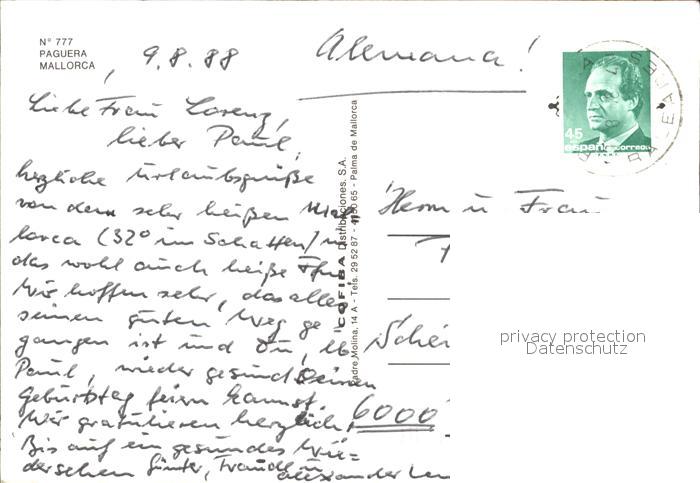 N° 777
PAGUERA
MALLORCA
9.8.88
Alemana!
Liebe Frau Lorenz,
lieber Paul,
herzliche Urlaubsgrüße
von dem sehr heißen Mal
lorca (32° im Schatten) in
das wohl auch heiße Ffm
Wir hoffen sehr, das alles
seinen guten Weg ge
gangen ist und Du, lb
Paul, wieder gesund Deinen
Geburtstag feiern kannst.
Wir gratulieren herzlich.
Bis auf ein gesundes Wie=
dersehen Günter, Traudl u
Alexander
COFIBA Distribuciones, S.A.
Padre Molina, 14 A - Tels. 29 52 87 - 41 50 65 - Palma de Mallorca
45
españa correos
Herrn u Frau
6000
privacy protection
Datenschutz